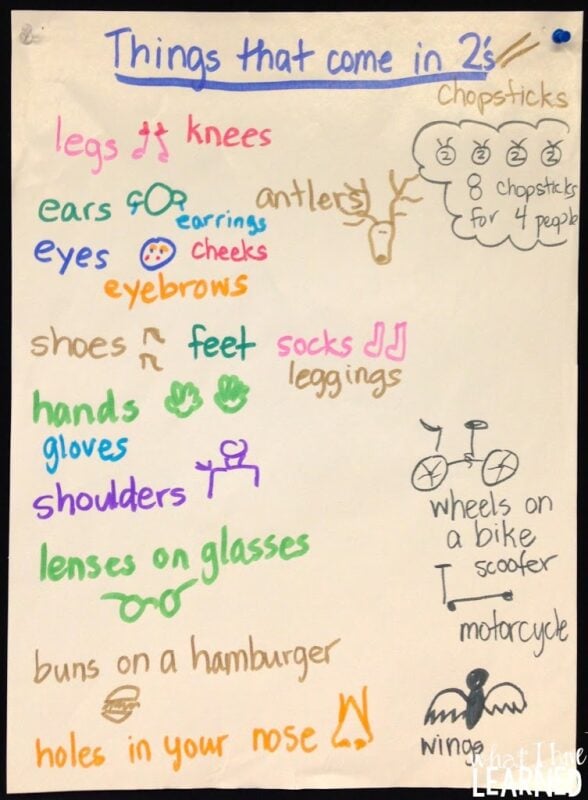 Things that come in 2's
chopsticks
legs knees
2 2 2 2
8 chopsticks
for 4 people
ears earrings
antlers
eyes cheeks
eyebrows
shoes feet socks
leggings
hands
gloves
shoulders
wheels on
a bike
scooter
motorcycle
lenses on glasses
buns on a hamburger
holes in your nose
wings
what I have
LEARNED